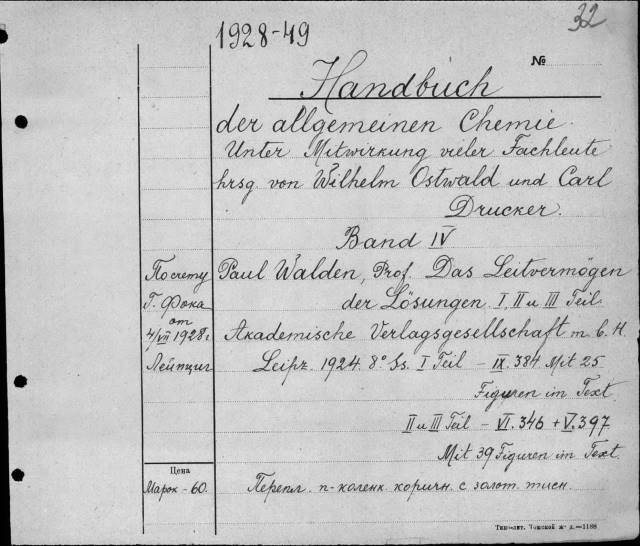 32
1928-49
№
Handbuch
der allgemeinen Chemie.
Unter Mitwirkung vieler Fachleute
hrsg. von Wilhelm Ostwald und Carl
Drucker.
Band IV
По счету
Г. Фока
от
4/VII 1928 г.
Лейпциг
Paul Walden, Prof. Das Leitvermögen
der Lösungen. I, II u III Teil.
Akademische Verlagsgesellschaft m. b. H.
Leipz. 1924. 8° Ss. I Teil – IX. 384 Mit 25
Figuren im Text
II u III Teil – VI. 346 + V. 397
Mit 39 Figuren im Text.
Цена
Марок - 60.
Перепл. п-коленк. коричн. с золот. тисн.
Тип-лит. Томской ж. д.—1188